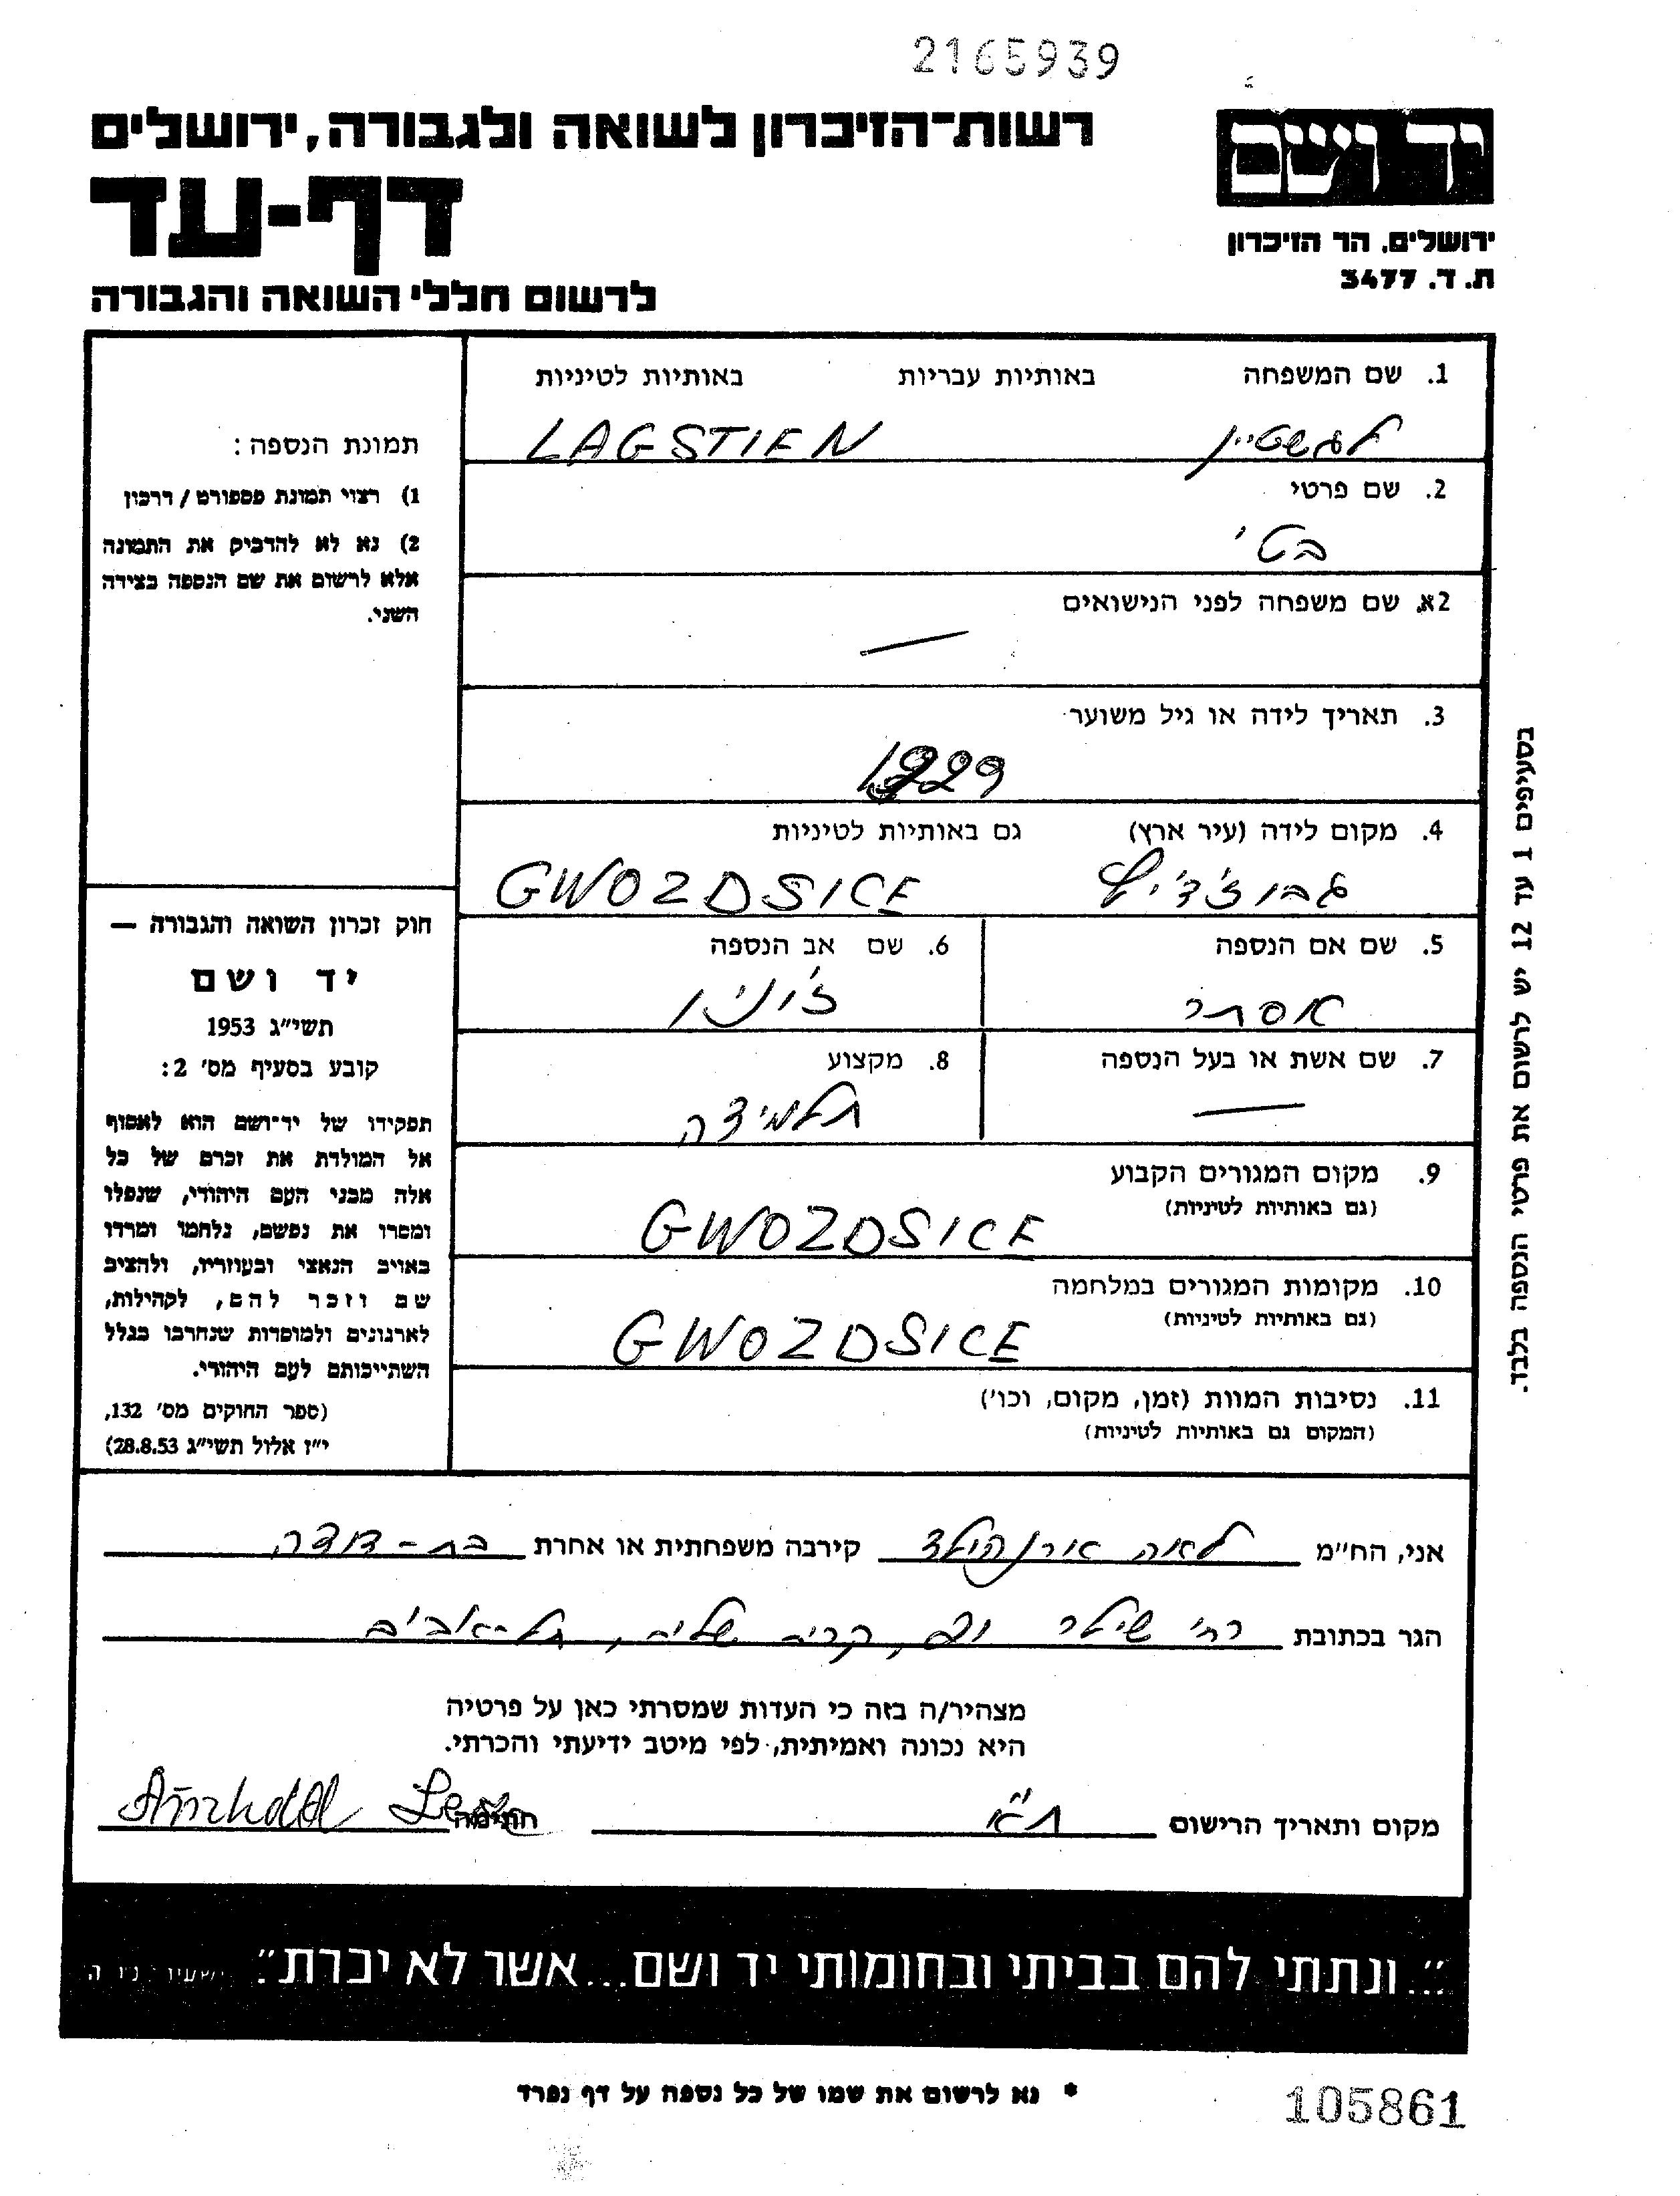 2165939
רשות-הזיכרון לשואה ולגבורה, ירושלים
דף-עד
לרשום חללי השואה והגבורה
יד ושם
ירושלים, הר הזיכרון
ת.ד. 3477
1. שם המשפחה באותיות עבריות באותיות לטיניות
לגשטיין LAGSTIEN
2. שם פרטי
בטי
2א. שם משפחה לפני הנישואים
—
3. תאריך לידה או גיל משוער
1929
4. מקום לידה (עיר ארץ) גם באותיות לטיניות
GWOZDSICE
5. שם אם הנספה 6. שם אב הנספה
אסתר ז'וניו
7. שם אשת או בעל הנספה 8. מקצוע
— תלמידה
9. מקום המגורים הקבוע
(גם באותיות לטיניות)
GWOZDSICE
10. מקומות המגורים במלחמה
(גם באותיות לטיניות)
GWOZDSICE
11. נסיבות המוות (זמן, מקום, וכו')
(המקום גם באותיות לטיניות)
תמונת הנספה:
1) רצוי תמונת פספורט / דרכון
2) נא לא להדביק את התמונה
אלא לרשום את שם הנספה בצידה
השני.
חוק זכרון השואה והגבורה —
יד ושם
תשי"ג 1953
קובע בסעיף מס' 2:
תפקידו של יד-ושם הוא לאסוף
אל המולדת את זכרם של כל
אלה מבני העם היהודי, שנפלו
ומסרו את נפשם, נלחמו ומרדו
באויב הנאצי ובעוזריו, ולהציב
שם וזכר להם, לקהילות,
לארגונים ולמוסדות שנחרבו בגלל
השתייכותם לעם היהודי.
(ספר החוקים מס' 132,
י"ז אלול תשי"ג 28.8.53)
בסעיפים 1 עד 12 יש לרשום את פרטי הנספה בלבד.
אני, הח"מ לאה ארנהולד קירבה משפחתית או אחרת בת-דודה
הגר בכתובת רח' שילר, קרית שלום, תל-אביב
מצהיר/ה בזה כי העדות שמסרתי כאן על פרטיה
היא נכונה ואמיתית, לפי מיטב ידיעתי והכרתי.
מקום ותאריך הרישום ת"א חתימה
"...ונתתי להם בביתי ובחומותי יד ושם...אשר לא יכרת". ישעיהו נ"ו ה
* נא לרשום את שמו של כל נספה על דף נפרד
105861